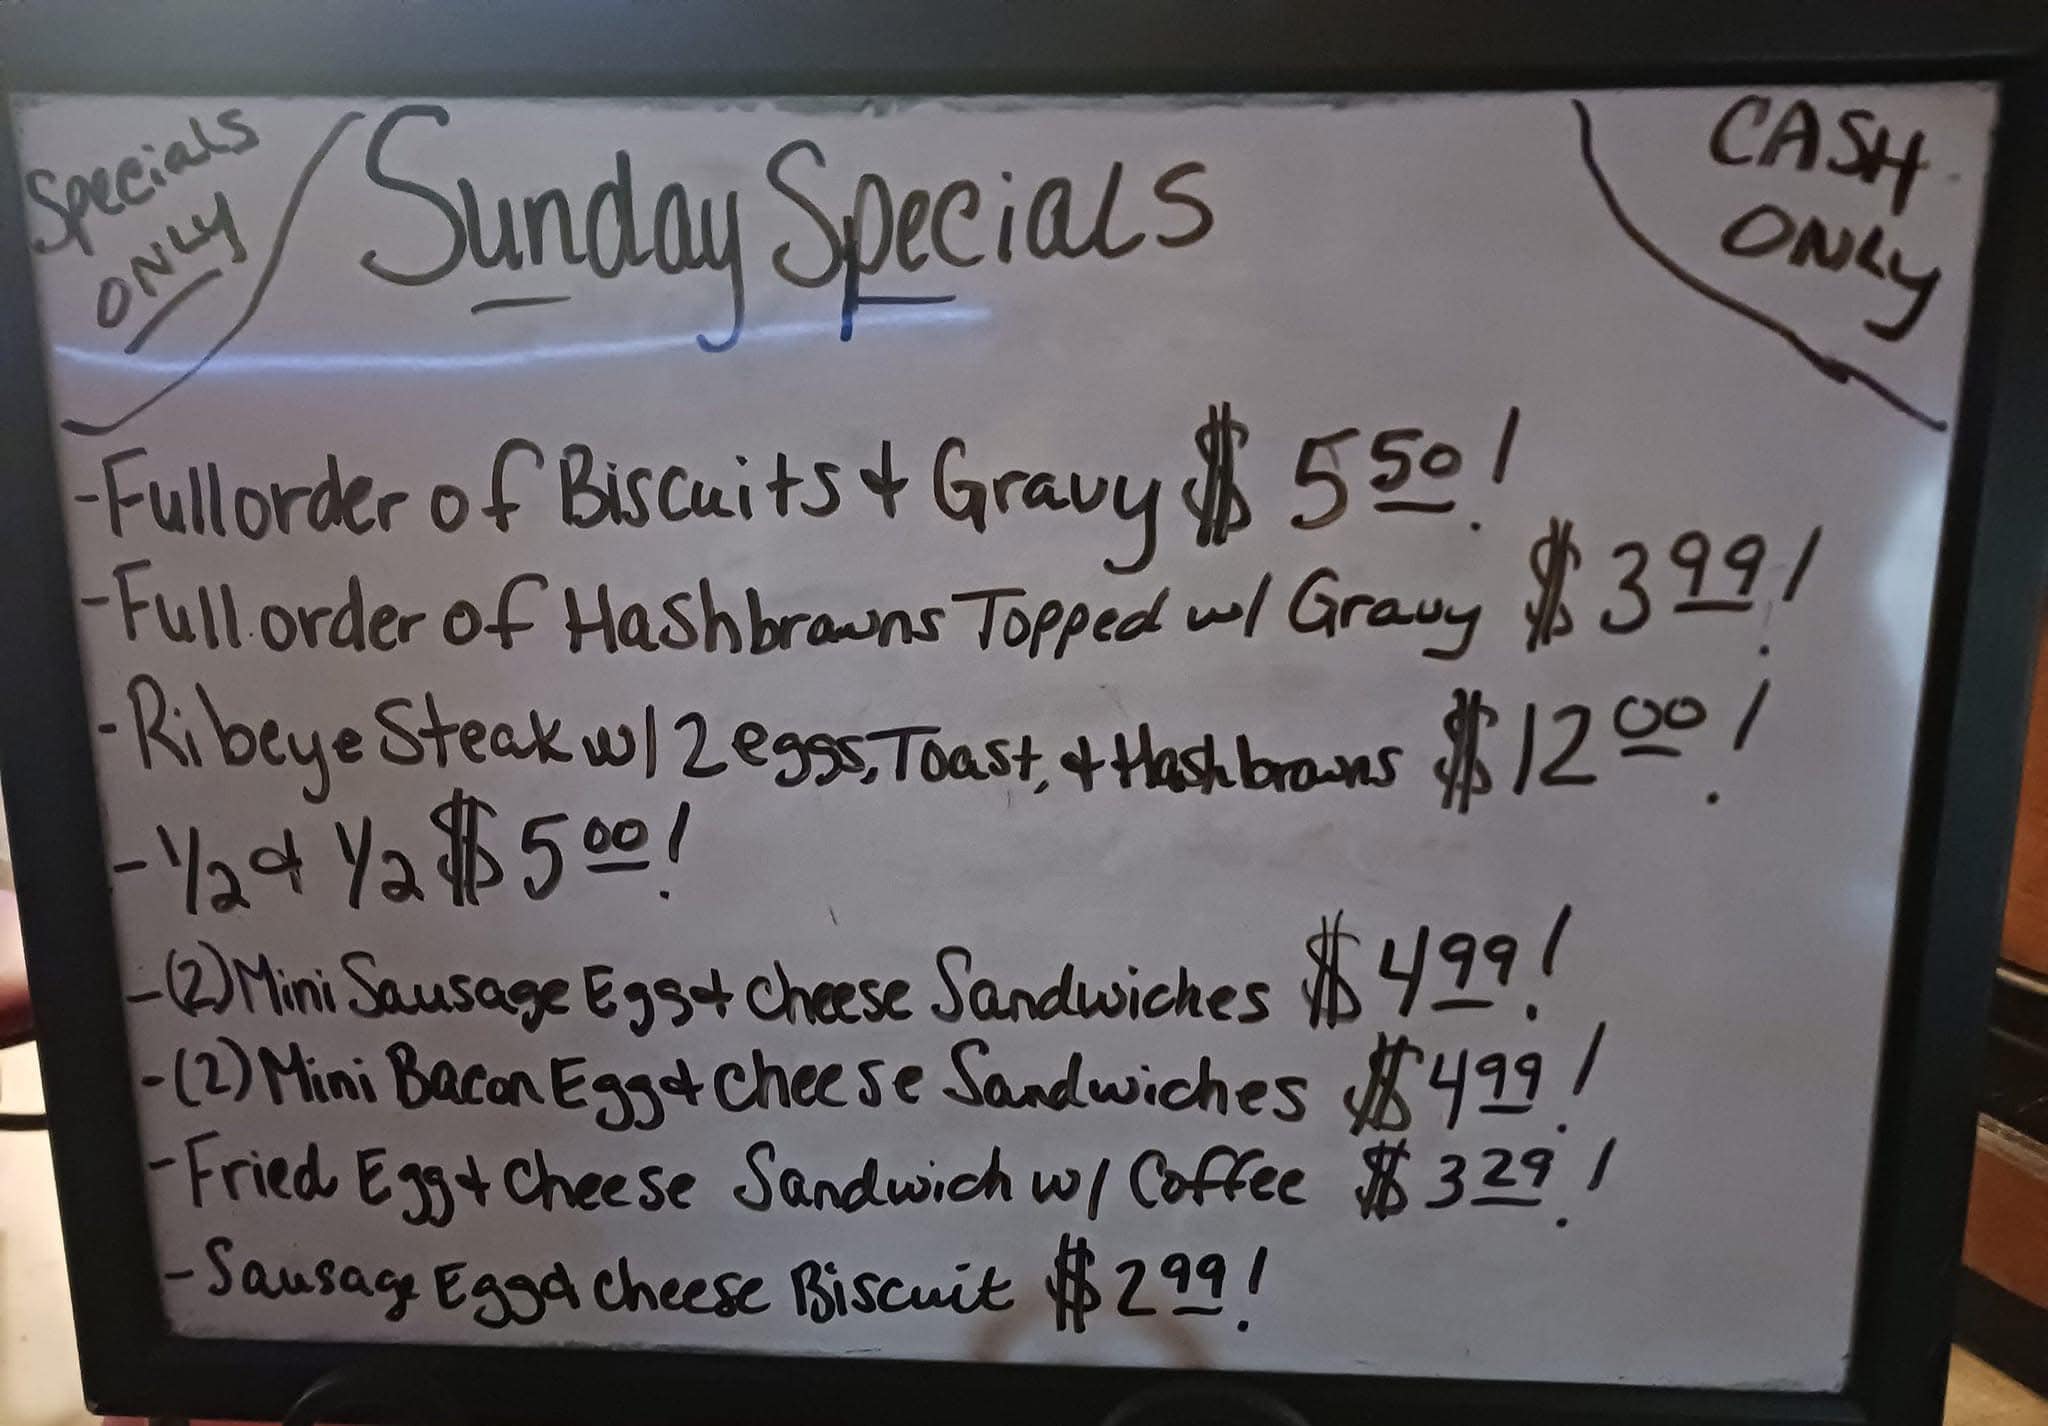 Specials
ONLY
Sunday Specials
CASH
ONLY
-Full order of Biscuits & Gravy $ 5 50!
-Full order of Hashbrowns Topped w/ Gravy $ 3 99!
-Ribeye Steak w/ 2 eggs, Toast, & Hashbrowns $12 00!
-1/2 & 1/2 $5 00!
-(2) Mini Sausage Egg & Cheese Sandwiches $4 99!
-(2) Mini Bacon Egg & Cheese Sandwiches $4 99!
-Fried Egg & Cheese Sandwich w/ Coffee $3 29!
-Sausage Egg & Cheese Biscuit $2 99!